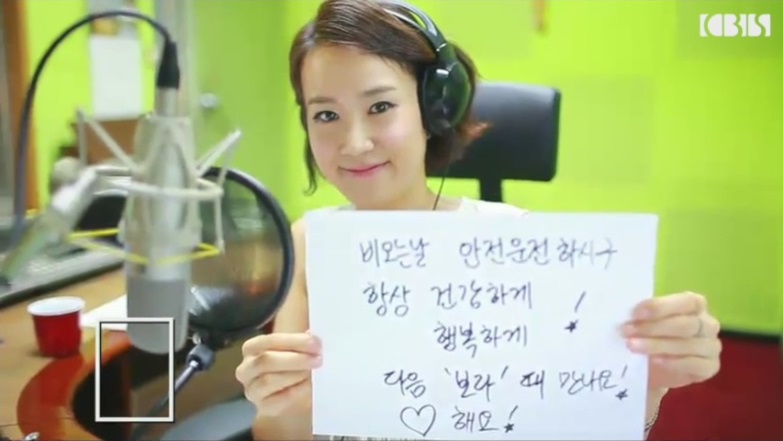 CBS
비오는날 안전운전 하시구
항상 건강하게
행복하게!
다음 '보라' 때 만나요!
♡ 해요!